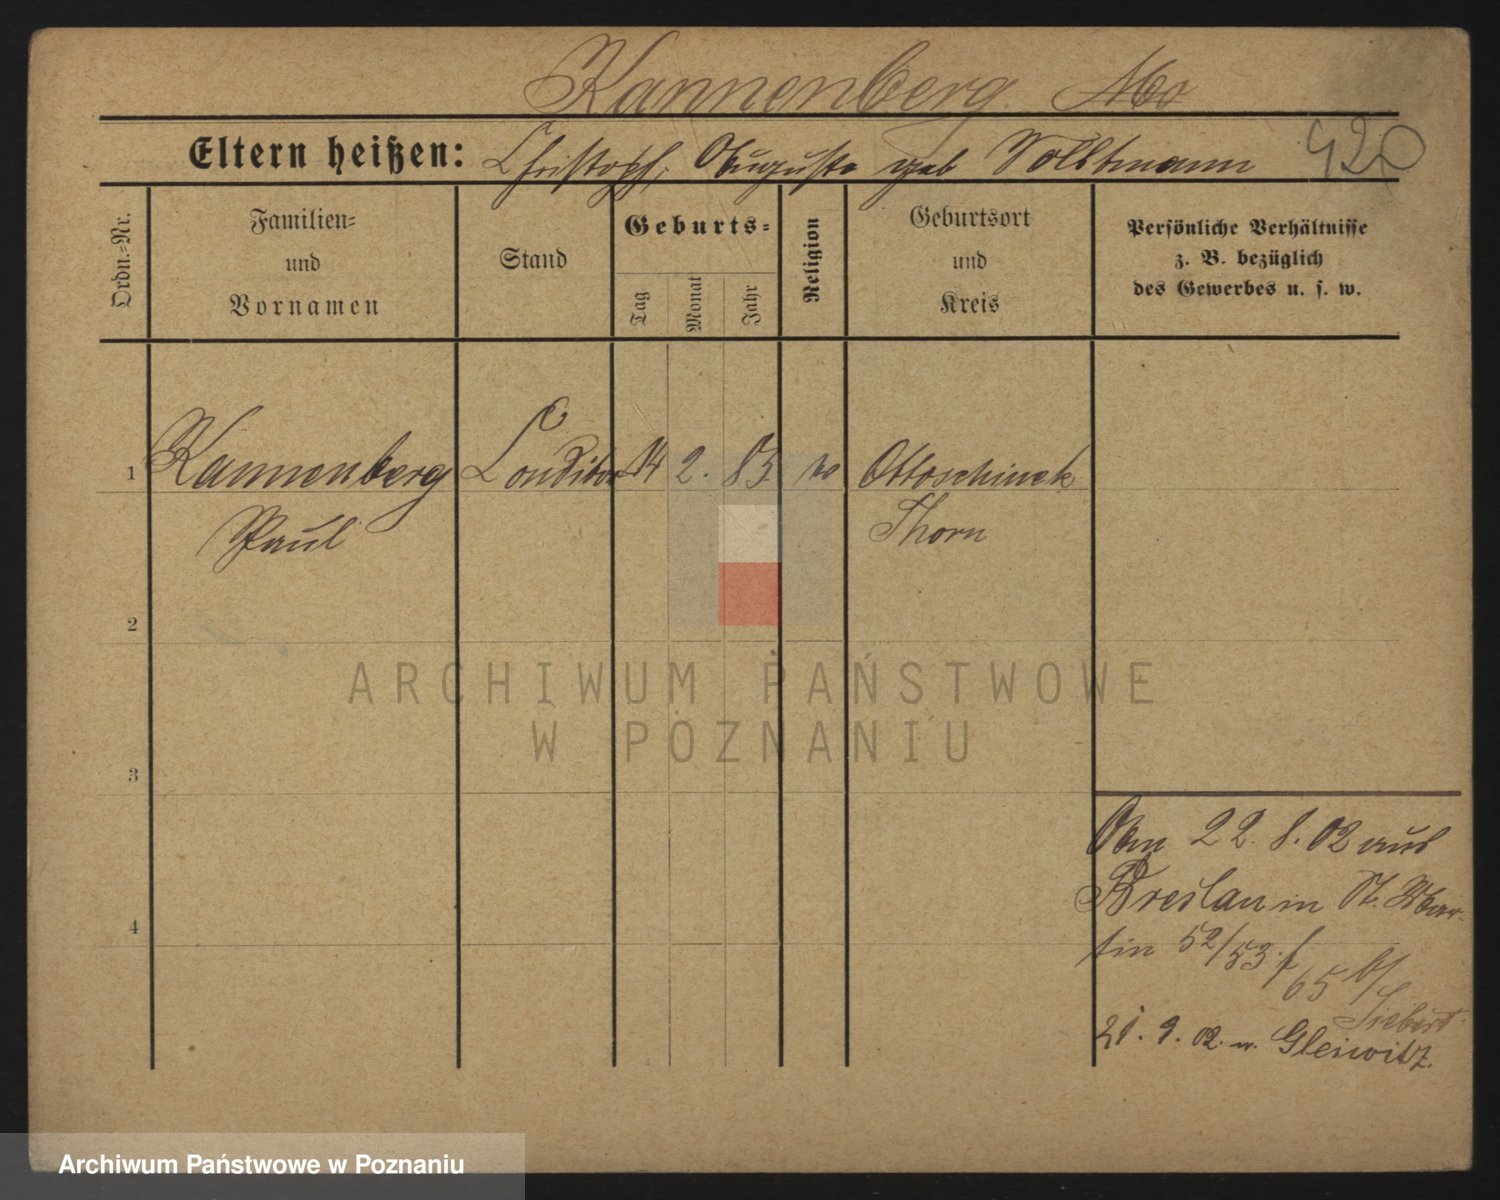 Kannenberg.
420
Eltern heißen: Christoph, Auguste geb Volkmann
Ordn.-Nr.
Familien-
und
Vornamen
Stand
Geburts-
Tag
Monat
Jahr
Religion
Geburtsort
und
Kreis
Persönliche Verhältnisse
z. B. bezüglich
des Gewerbes u. s. w.
1 Kannenberg Conditor 14 2. 83. Ottoschinek
Paul Thorn
2
3
4
Am 22. 8. 02 aus
Breslau in St. Mar-
tin 52/53. f
65 b/
Siebert.
21. 9. 02. n. Gleiwitz.
ARCHIWUM PAŃSTWOWE
W POZNANIU
Archiwum Państwowe w Poznaniu